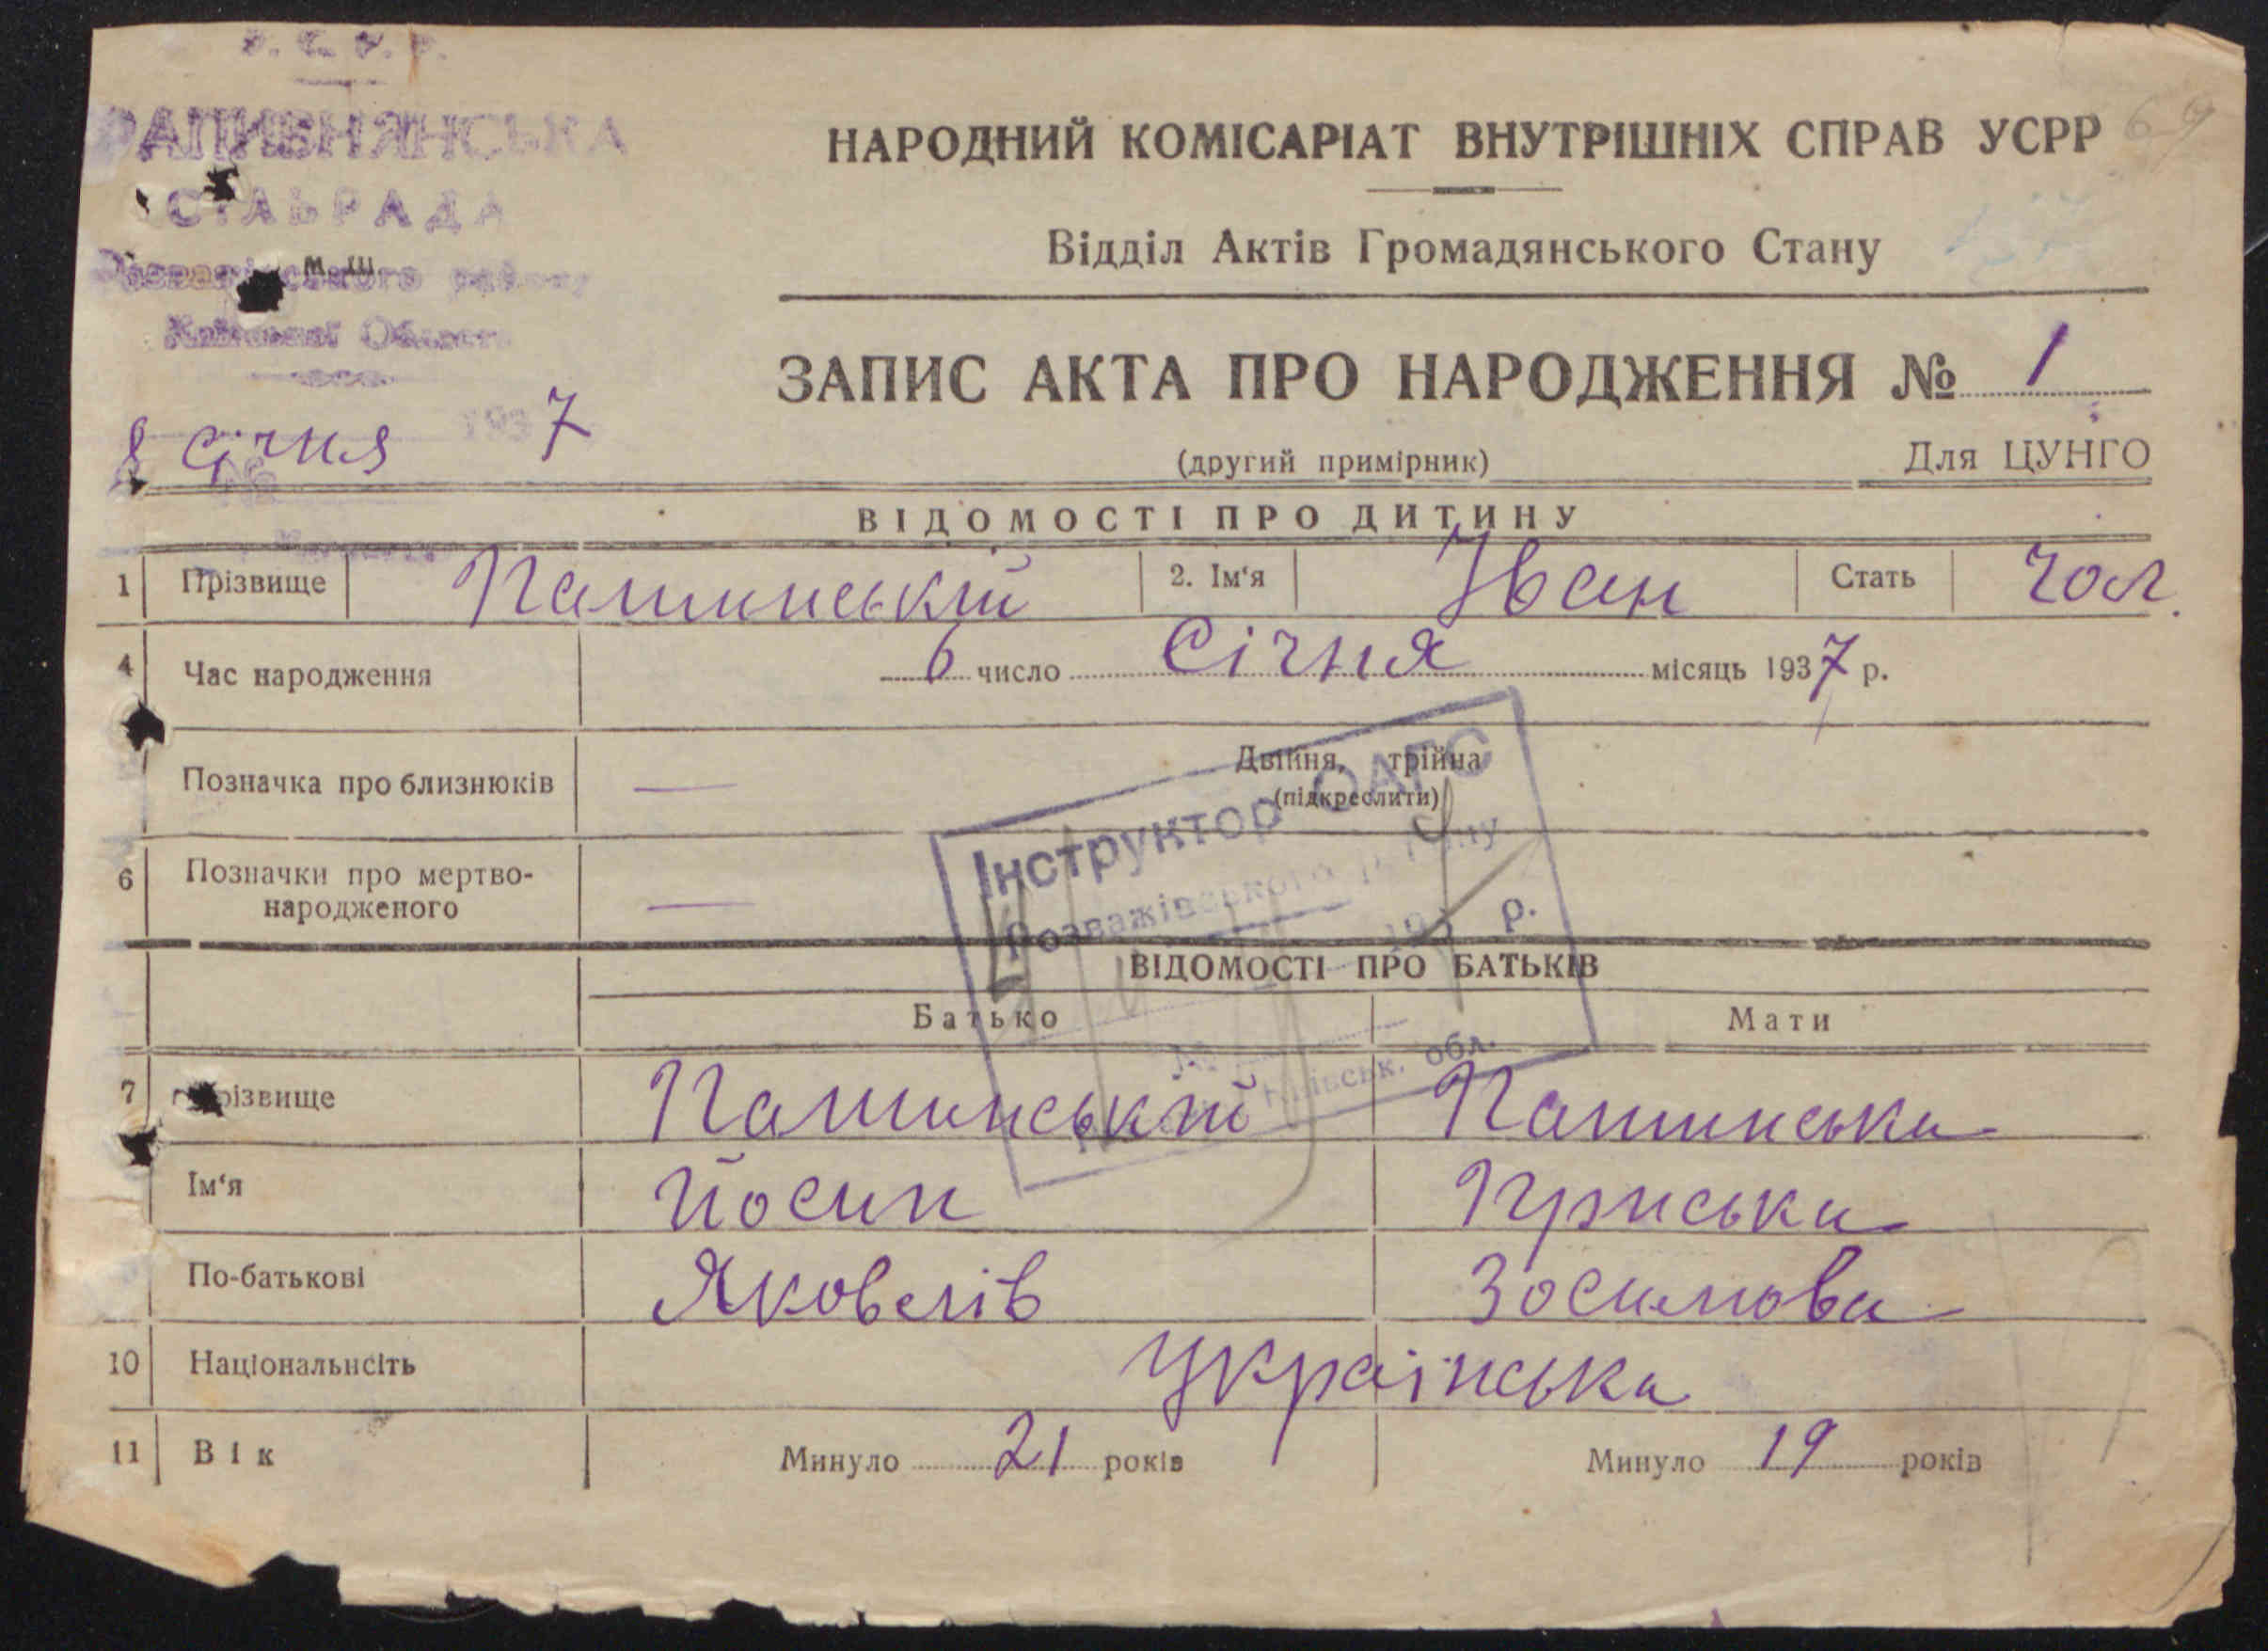 У. С. Р. Р.
СІЛЬРАДА
Розважівського району
Київської Області
м. ш.
8 січня 1937
НАРОДНИЙ КОМІСАРІАТ ВНУТРІШНІХ СПРАВ УСРР
69
Відділ Актів Громадянського Стану
ЗАПИС АКТА ПРО НАРОДЖЕННЯ № 1
(другий примірник)
Для ЦУНГО
ВІДОМОСТІ ПРО ДИТИНУ
1 Прізвище Пашинський 2. Ім'я Іван Стать чол.
4 Час народження 6 число Січня місяць 1937 р.
Позначка про близнюків — Двійня, трійна
(підкреслити)
6 Позначки про мертво-
народженого —
Інструктор ОАГС
Розважівського р.
193 р.
№
Київськ. обл.
ВІДОМОСТІ ПРО БАТЬКІВ
Батько Мати
7 Прізвище Пашинський Пашинська
Ім'я Йосип Приська
По-батькові Яковлів Зосимова
10 Національнсіть Українська
11 Вік Минуло 21 років Минуло 19 років